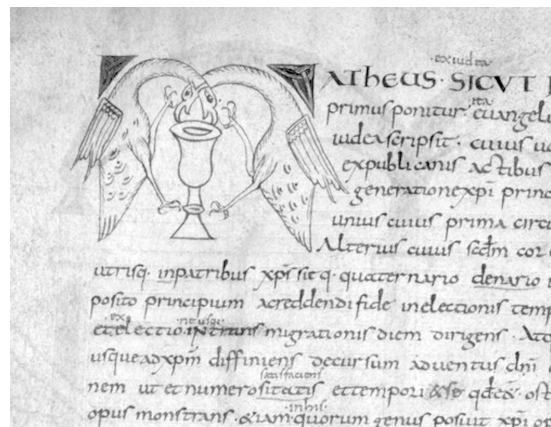 ex iudea
ATHEUS · SICVT
primus ponitur · euangeli
ita
iudea scripsit · cuius uo
ex publicanis actibus
generationẽ xp̃i prin
unius cuius prima circu
Alterius cuius sc̃dm cor
utrisq · in patribus xp̃s sit q · quaternario denario
posito principium a credendi fide in electionis temp
et electio in trans migrationis diem dirigens · Atq
usque ad xp̃m diffiniens decursum aduentus dn̄i
satisfaciens
nem ut et numerositatis et tempori & se qd e& · ost
in his
opus monstrans · & iam quorum genus posuit xp̃i op